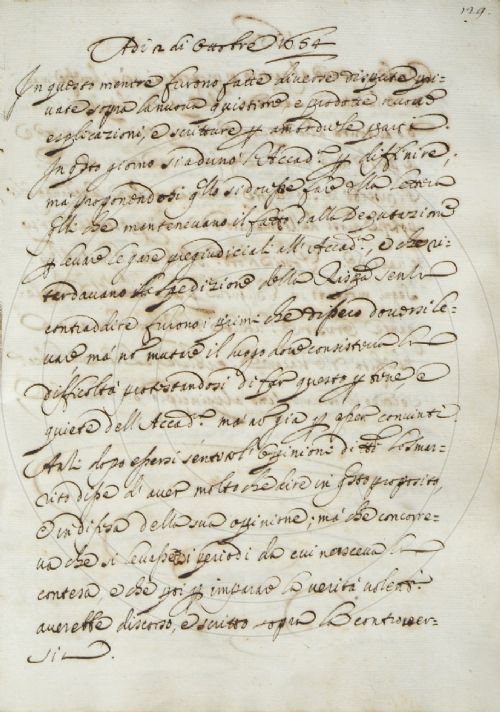 129.
Adi 2 di Ottobre 1654
In questo mentre furono fatte diverse dispute pri-
vate sopra la nuova quistione, e prodotte nuove
esplicazioni, e scritture p ambedue le parti.
In qsto giorno si adunò l'Accad.ª p diffinire,
ma proponendosi qllo si dovesse fare della lettera
qlli che mantenevano il fatto dalla Deputazione
p levare le gare pregiudiciali all'Accad.ª e che ri-
tardavano la spedizione della senza
contraddire furono i primi che dissero doversi le-
vare ma nō mutare il luogo dove consisteva la
difficoltà protestandosi di far questo p bene e
quiete dell'Accad.ª ma nō già p esser convinti.
Anzi dopo essersi sentito l'opinioni di tti Lo Smar-
rito disse di aver molto che dire in qsto proposito,
e in difesa della sua opinione; ma che concorre-
va che si levassero i periodi da cui nasceva la
contesa, e che poi p imparare la verità volent.i
averebbe discorso, e scritto sopra la controver-
sia.